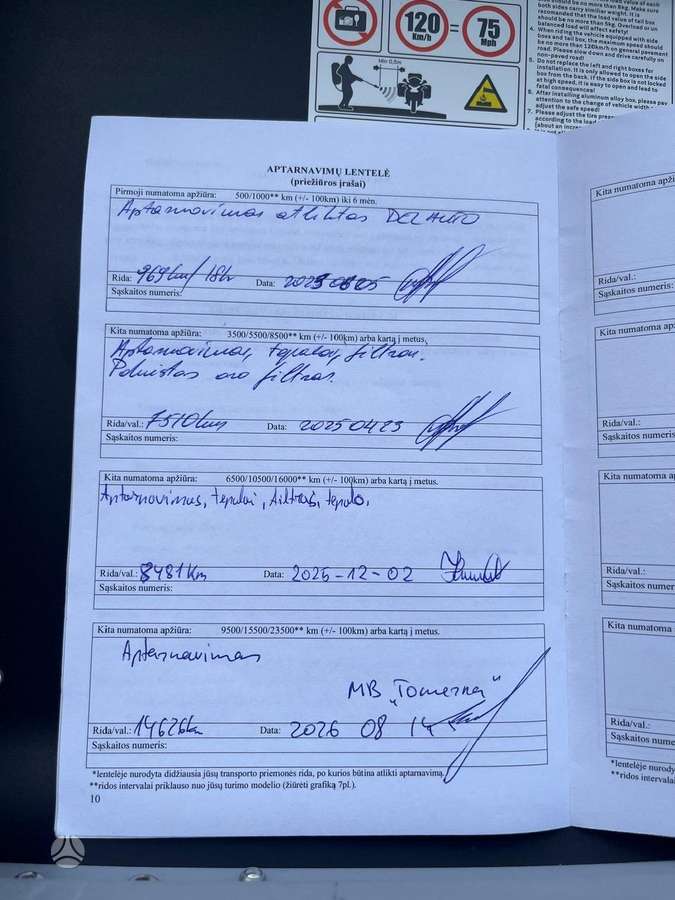 120
Km/h
=
75
Mph
Min 0,5m
should be no more than 5kg. Make sure
both sides carry similiar weight. It is
recomanded that the load value of tail box
should be no more than 5kg. Overload or un
balanced load will affect safety!
4. When riding the vehicle equipped with side
boxes and tail box, the maximum speed should
be no more than 120km/h on general pavement
road. Please slow down and drive carefully on
non-paved road!
5. Do not replace the left and right boxes for
installation. It is only allowed to open the side
box from the back. If the side box is not locked
at high speed, it is easy to open and lead to
fatal consequences!
6. After installing aluminum alloy box, please pay
attention to the change of vehicle width
adjust the safe speed!
7. Please adjust the tire
according to the load
(about an
APTARNAVIMŲ LENTELĖ
(priežiūros įrašai)
Pirmoji numatoma apžiūra: 500/1000** km (+/- 100km) iki 6 mėn.
Aptarnavimas atliktas DELAUTO
Rida: 969km/18h Data:
Sąskaitos numeris:
Kita numatoma apžiūra: 3500/5500/8500** km (+/- 100km) arba kartą į metus.
Aptarnavimas, tepalai, filtras.
oro filtras.
Rida/val.: 7510km Data: 20250423
Sąskaitos numeris:
Kita numatoma apžiūra: 6500/10500/16000** km (+/- 100km) arba kartą į metus.
Aptarnavimas, tepalai, filtras, tepalo,
Rida/val.: 8481Km Data: 2025-12-02
Sąskaitos numeris:
Kita numatoma apžiūra: 9500/15500/23500** km (+/- 100km) arba kartą į metus.
Aptarnavimas
MB
Rida/val.: 14626km Data: 2026 08 14
Sąskaitos numeris:
*lentelėje nurodyta didžiausia jūsų transporto priemonės rida, po kurios būtina atlikti aptarnavimą.
**ridos intervalai priklauso nuo jūsų turimo modelio (žiūrėti grafiką 7pl.).
10
Kita numatoma
Rida/val.:
Sąskaitos numeris:
Kita numatoma
Rida/val.:
Sąskaitos
Kita numatoma
Rida/val.:
Sąskaitos
Kita numatoma
Rida/val.:
Sąskaitos
*lentelėje
**ridos